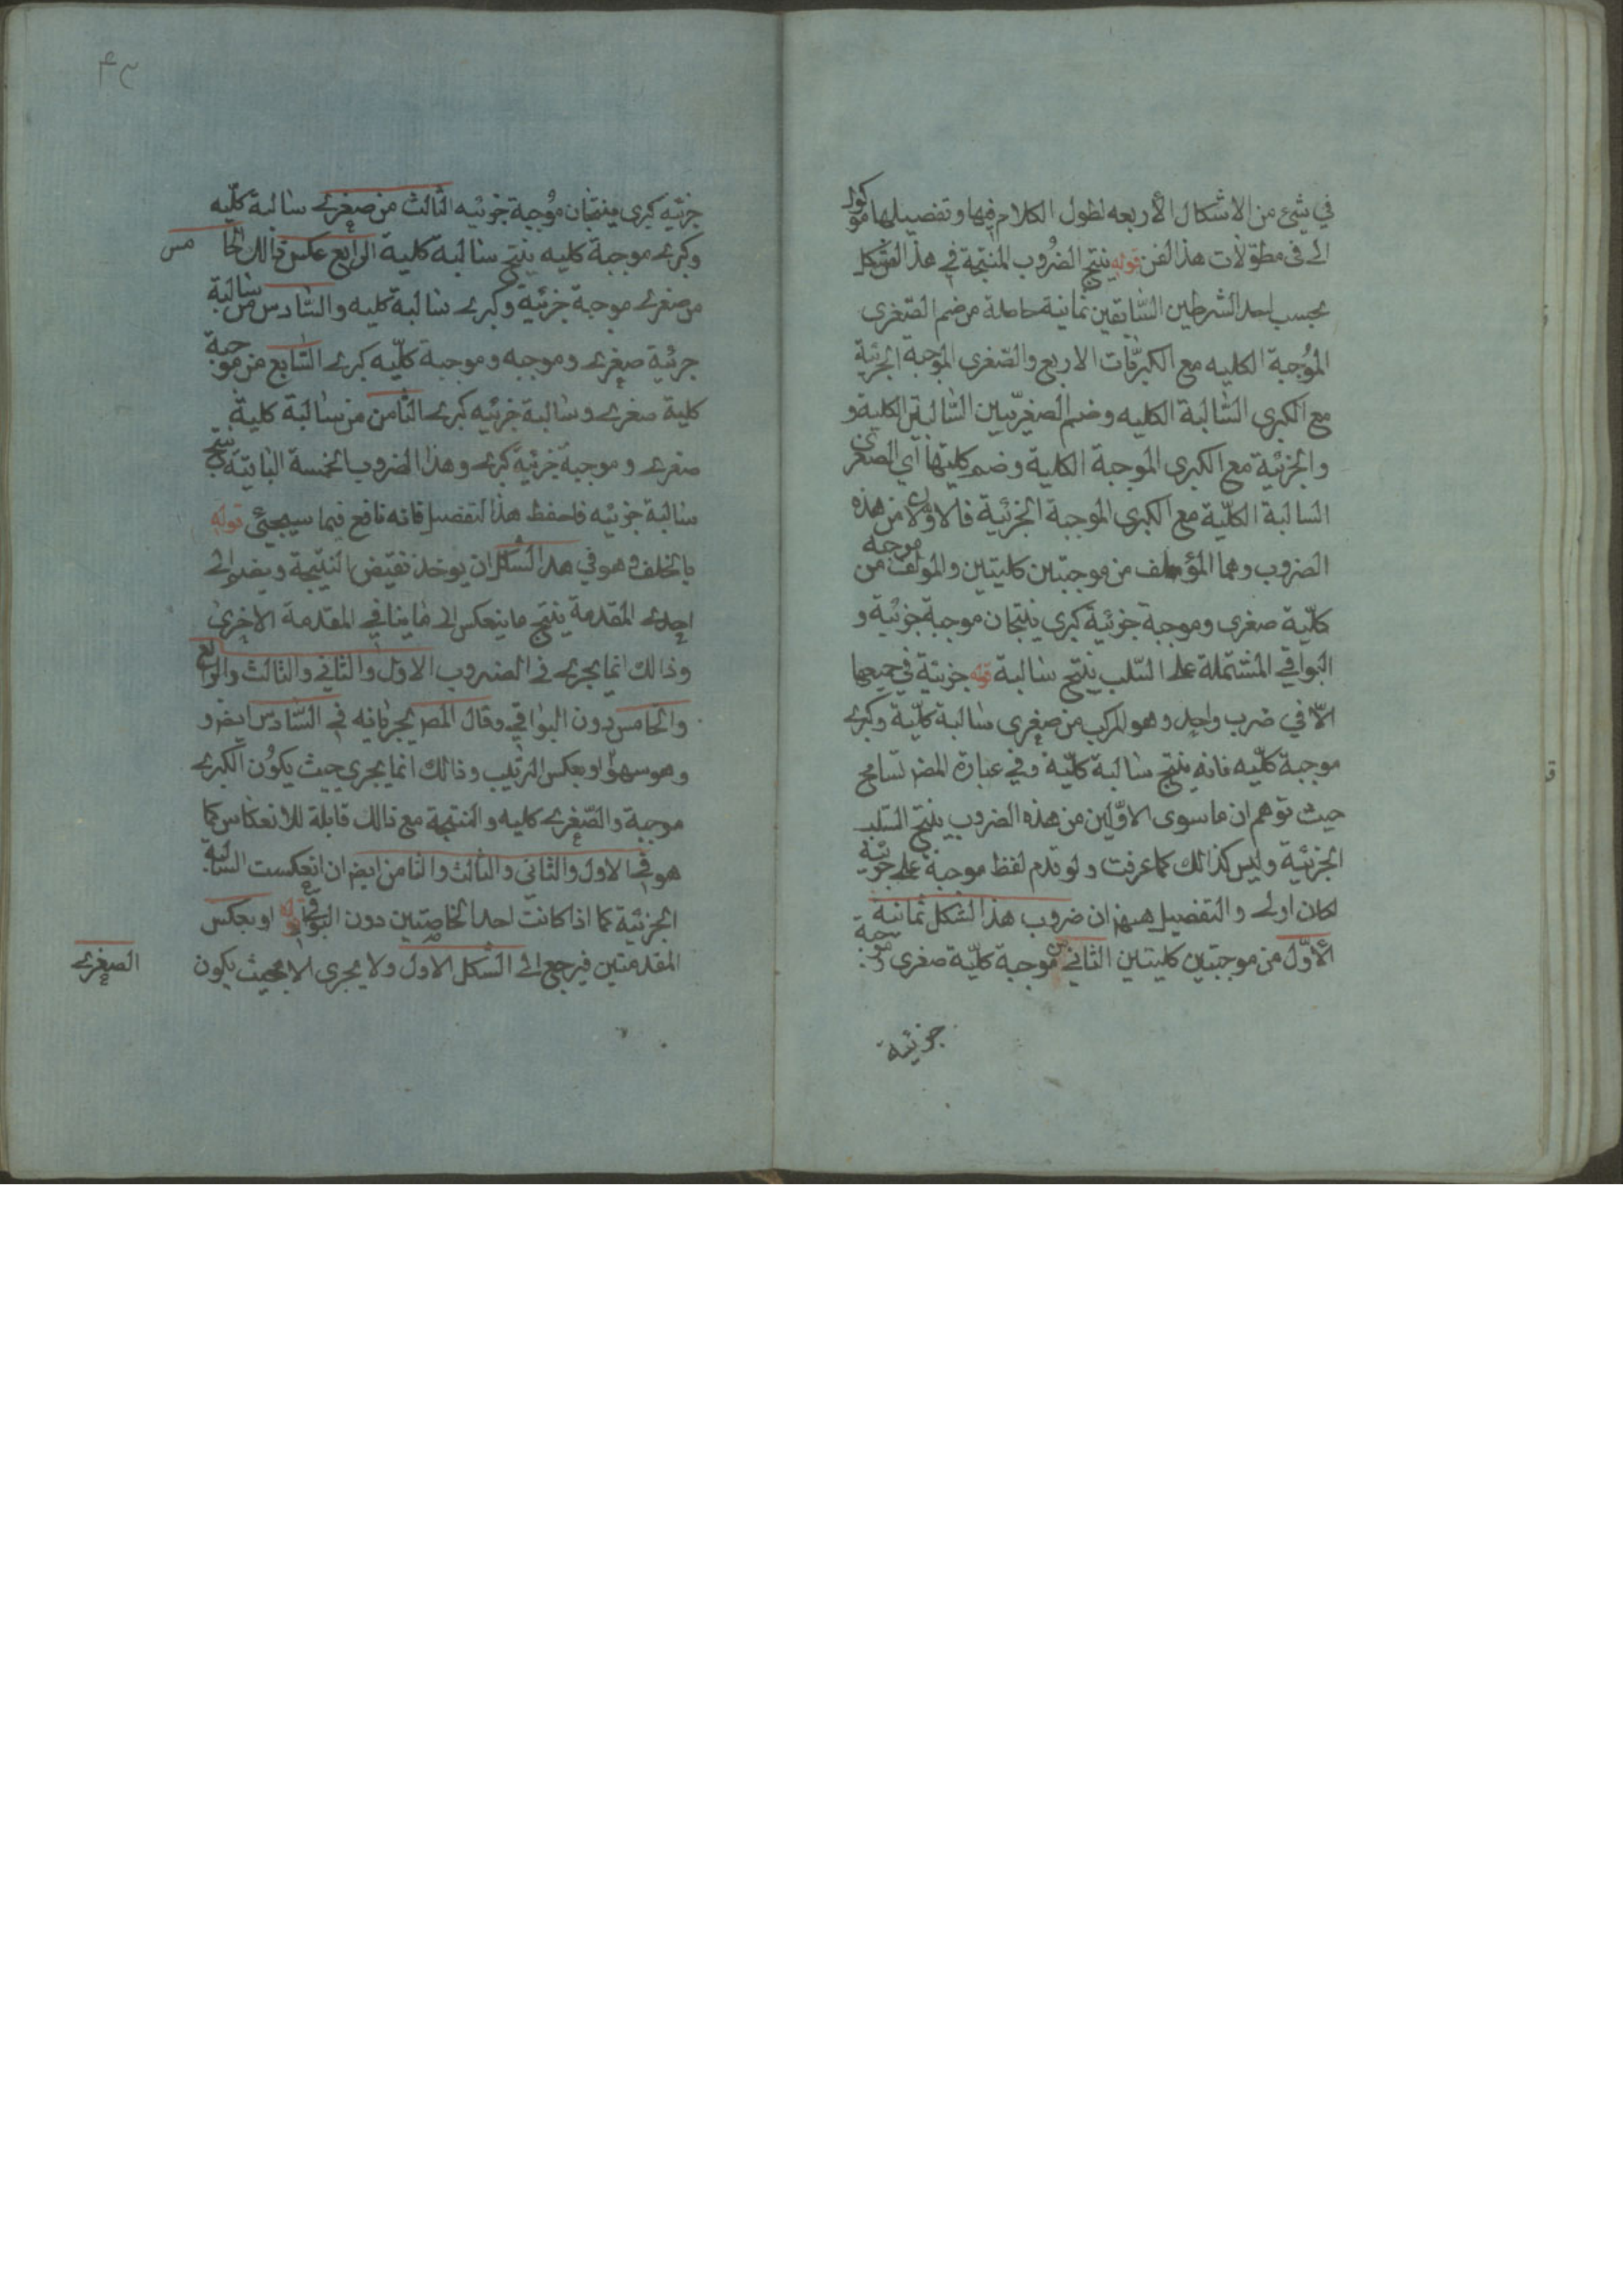 في شئ من الاشكال الأربعه لطول الكلام فيها وتفصيلها موكول
الى فى مطولات هذ الفن قوله ينتج الضروب المنتجة في هذ الشكل
بحسب احد الشرطين السابقين ثمانية حاصلة من ضم الصغرى
الموجبة الكليه مع الكبريات الاربع والصغرى الموجبة الجزئية
مع الكبرى السالبة الكليه وضم الصغريين السالبتين الكلية و
والجزئية مع الكبرى الموجبة الكلية وضم كليتها اي الصغرى
السالبة الكلية مع الكبرى الموجبة الجزئية فالاولان من هذه
الضروب وهما المؤلف من موجبتين كليتين والمولف من موجبه
كلية صغرى وموجبة جزئية كبرى ينتجان موجبة جزئية و
البواقي المشتملة على السلب ينتج سالبة قوله جزئية في جميعها
الا في ضرب واحد وهو المركب من صغرى سالبة كلية وكبرى
موجبة كليه فانه ينتج سالبة كلية وفي عبارة المض تسامح
حيث توهم ان ما سوى الاولين من هذه الضروب ينتج السلب
الجزئية وليس كذالك كما عرفت ولو قدم لفظ موجبة على جزئية
لكان اولى والتفصيل ههنا ان ضروب هذ الشكل ثمانية
الأول من موجبتين كليتين الثاني من موجبة كلية صغرى وموجبة
جزئية
۴۳
جزئيه كبرى ينتجان موجبة جزئيه الثالث من صغرى سالبة كليه
وكبرى موجبة كليه ينتج سالبة كلية الرابع عكس ذالك الخامس
من صغرى موجبة جزئية وكبرى سالبة كليه والسادس من سالبة
جزئية صغرى وموجبه وموجبة كليه كبرى السابع من موجبة
كلية صغرى وسالبة جزئيه كبرى الثامن من سالبة كلية
صغرى وموجبة جزئية كبرى وهذا الضروب الخمسة الباتية ينتج
سالبة جزئيه فاحفظ هذ التفصيل فانه نافع فيما سيجئ قوله
بالخلف وهو في هذ الشكل ان يوخذ نقيض النتيجة ويضم الى
احدى المقدمة ينتج ما ينعكس الى ما ينافي المقدمة الاخرى
وذالك انما يجرى في الضروب الاول والثاني والثالث والرابع
والخامس دون البواقي وقال المص بجريانه في السادس ايض و
وهو سهو او بعكس الترتيب وذالك انما يجرى حيث يكون الكبرى
موجبة والصغرى كليه والنتيجة مع ذالك قابلة للانعكاس كما
هو في الاول والثاني والثالث والثامن ايض ان انعكست السالبة
الجزئية كما اذا كانت احد الخاصتين دون البواقي قوله او بعكس
المقدمتين فيرجع الى الشكل الاول ولا يجرى الا بحيث يكون
الصغرى